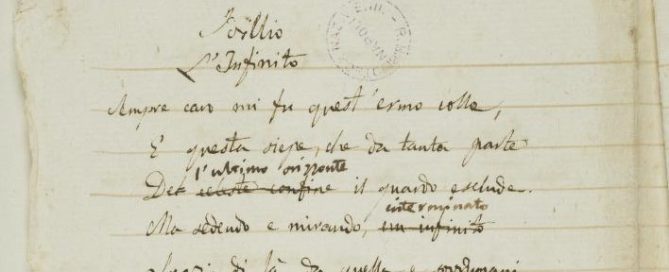 Idillio
L'Infinito
Sempre caro mi fu quest'ermo colle,
E questa siepe, che da tanta parte
l'ultimo orizzonte
Del celeste confine il guardo esclude.
interminato
Ma sedendo e mirando, un infinito
Spazio di là da quella, e sovrumani